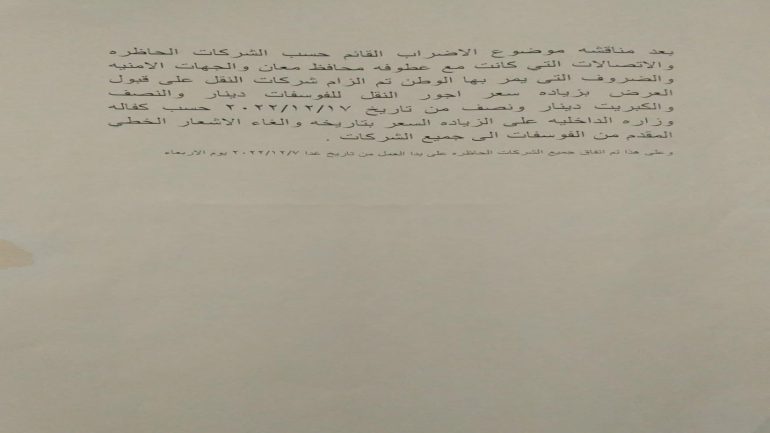 بعد مناقشه موضوع الاضراب القائم حسب الشركات الحاظره
والاتصالات التي كانت مع عطوفه محافظ معان والجهات الامنيه
والضروف التي يمر بها الوطن تم الزام شركات النقل على قبول
العرض بزياده سعر اجور النقل للفوسفات دينار والنصف
والكبريت دينار ونصف من تاريخ ٢٠٢٢/١٢/١٧ حسب كفاله
وزاره الداخليه على الزياده السعر بتاريخه والغاء الاشعار الخطي
المقدم من الفوسفات الى جميع الشركات .
وعلى هذا تم اتفاق جميع الشركات الحاظره على بدا العمل من تاريخ غدا ٢٠٢٢/١٢/٧ يوم الاربعاء